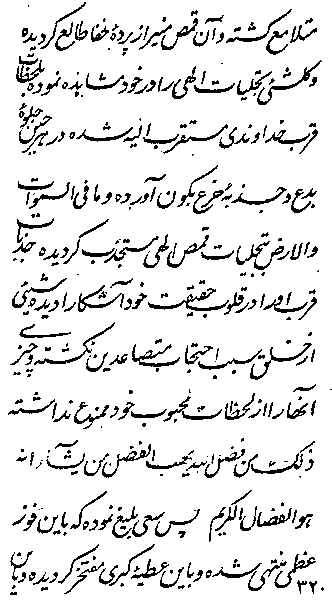 متلامع گشته و آن قمص منیر از پردهٔ خفا طالع گردیده
و کلشیئ تجلیات الهی را در خود مشاهده نموده بلحظات
قرب خداوندی مستقرب الیه شده در هر حین جلوهٔ
بدع و جذبهٔ مخترع بکون آورده و ما فی السموات
والارض بتجلیات قمص الهی مستجذب گردیده جذبات
قرب او را در قلوب حقیقت خود آشکارا دیده شیئی
از خلق سبب احتجاب متصاعدین نگشته و چیزی
آنها را از لحظات محبوب خود ممنوع نداشته
ذلک من فضل الله یهب الفضل من یشآء انه
هو الفضال الکریم پس سعی بلیغ نموده که باین فوز
عظمی منتهی شده و باین عطیهٔ کبری مفتخر گردیده و باین
۳۲۰